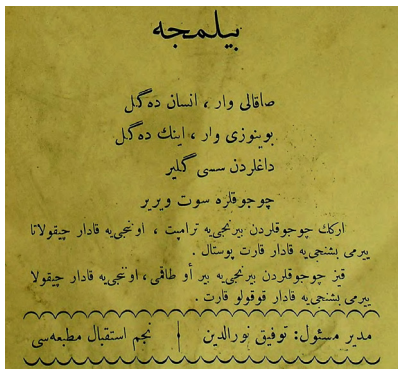 بیلمجه
صاقالی وار ، انسان ده‌گل
بوینوزی وار ، اینك ده‌گل
داغلردن سسی گلیر
چوجوقلره سوت ویریر
ارکك چوجوقلردن برنجی‌یه ترامپت ، اوننجی‌یه قادار چیقولاتا
ییرمی بشنجی‌یه قادار قارت پوستال .
قیز چوجوقلردن برنجی‌یه بیر أو طاقمی ، اوننجی‌یه قادار چیقولا
ییرمی بشنجی‌یه قادار قوقولو قارت .
مدیر مسئول: توفیق نورالدین | نجم استقبال مطبعه‌سی